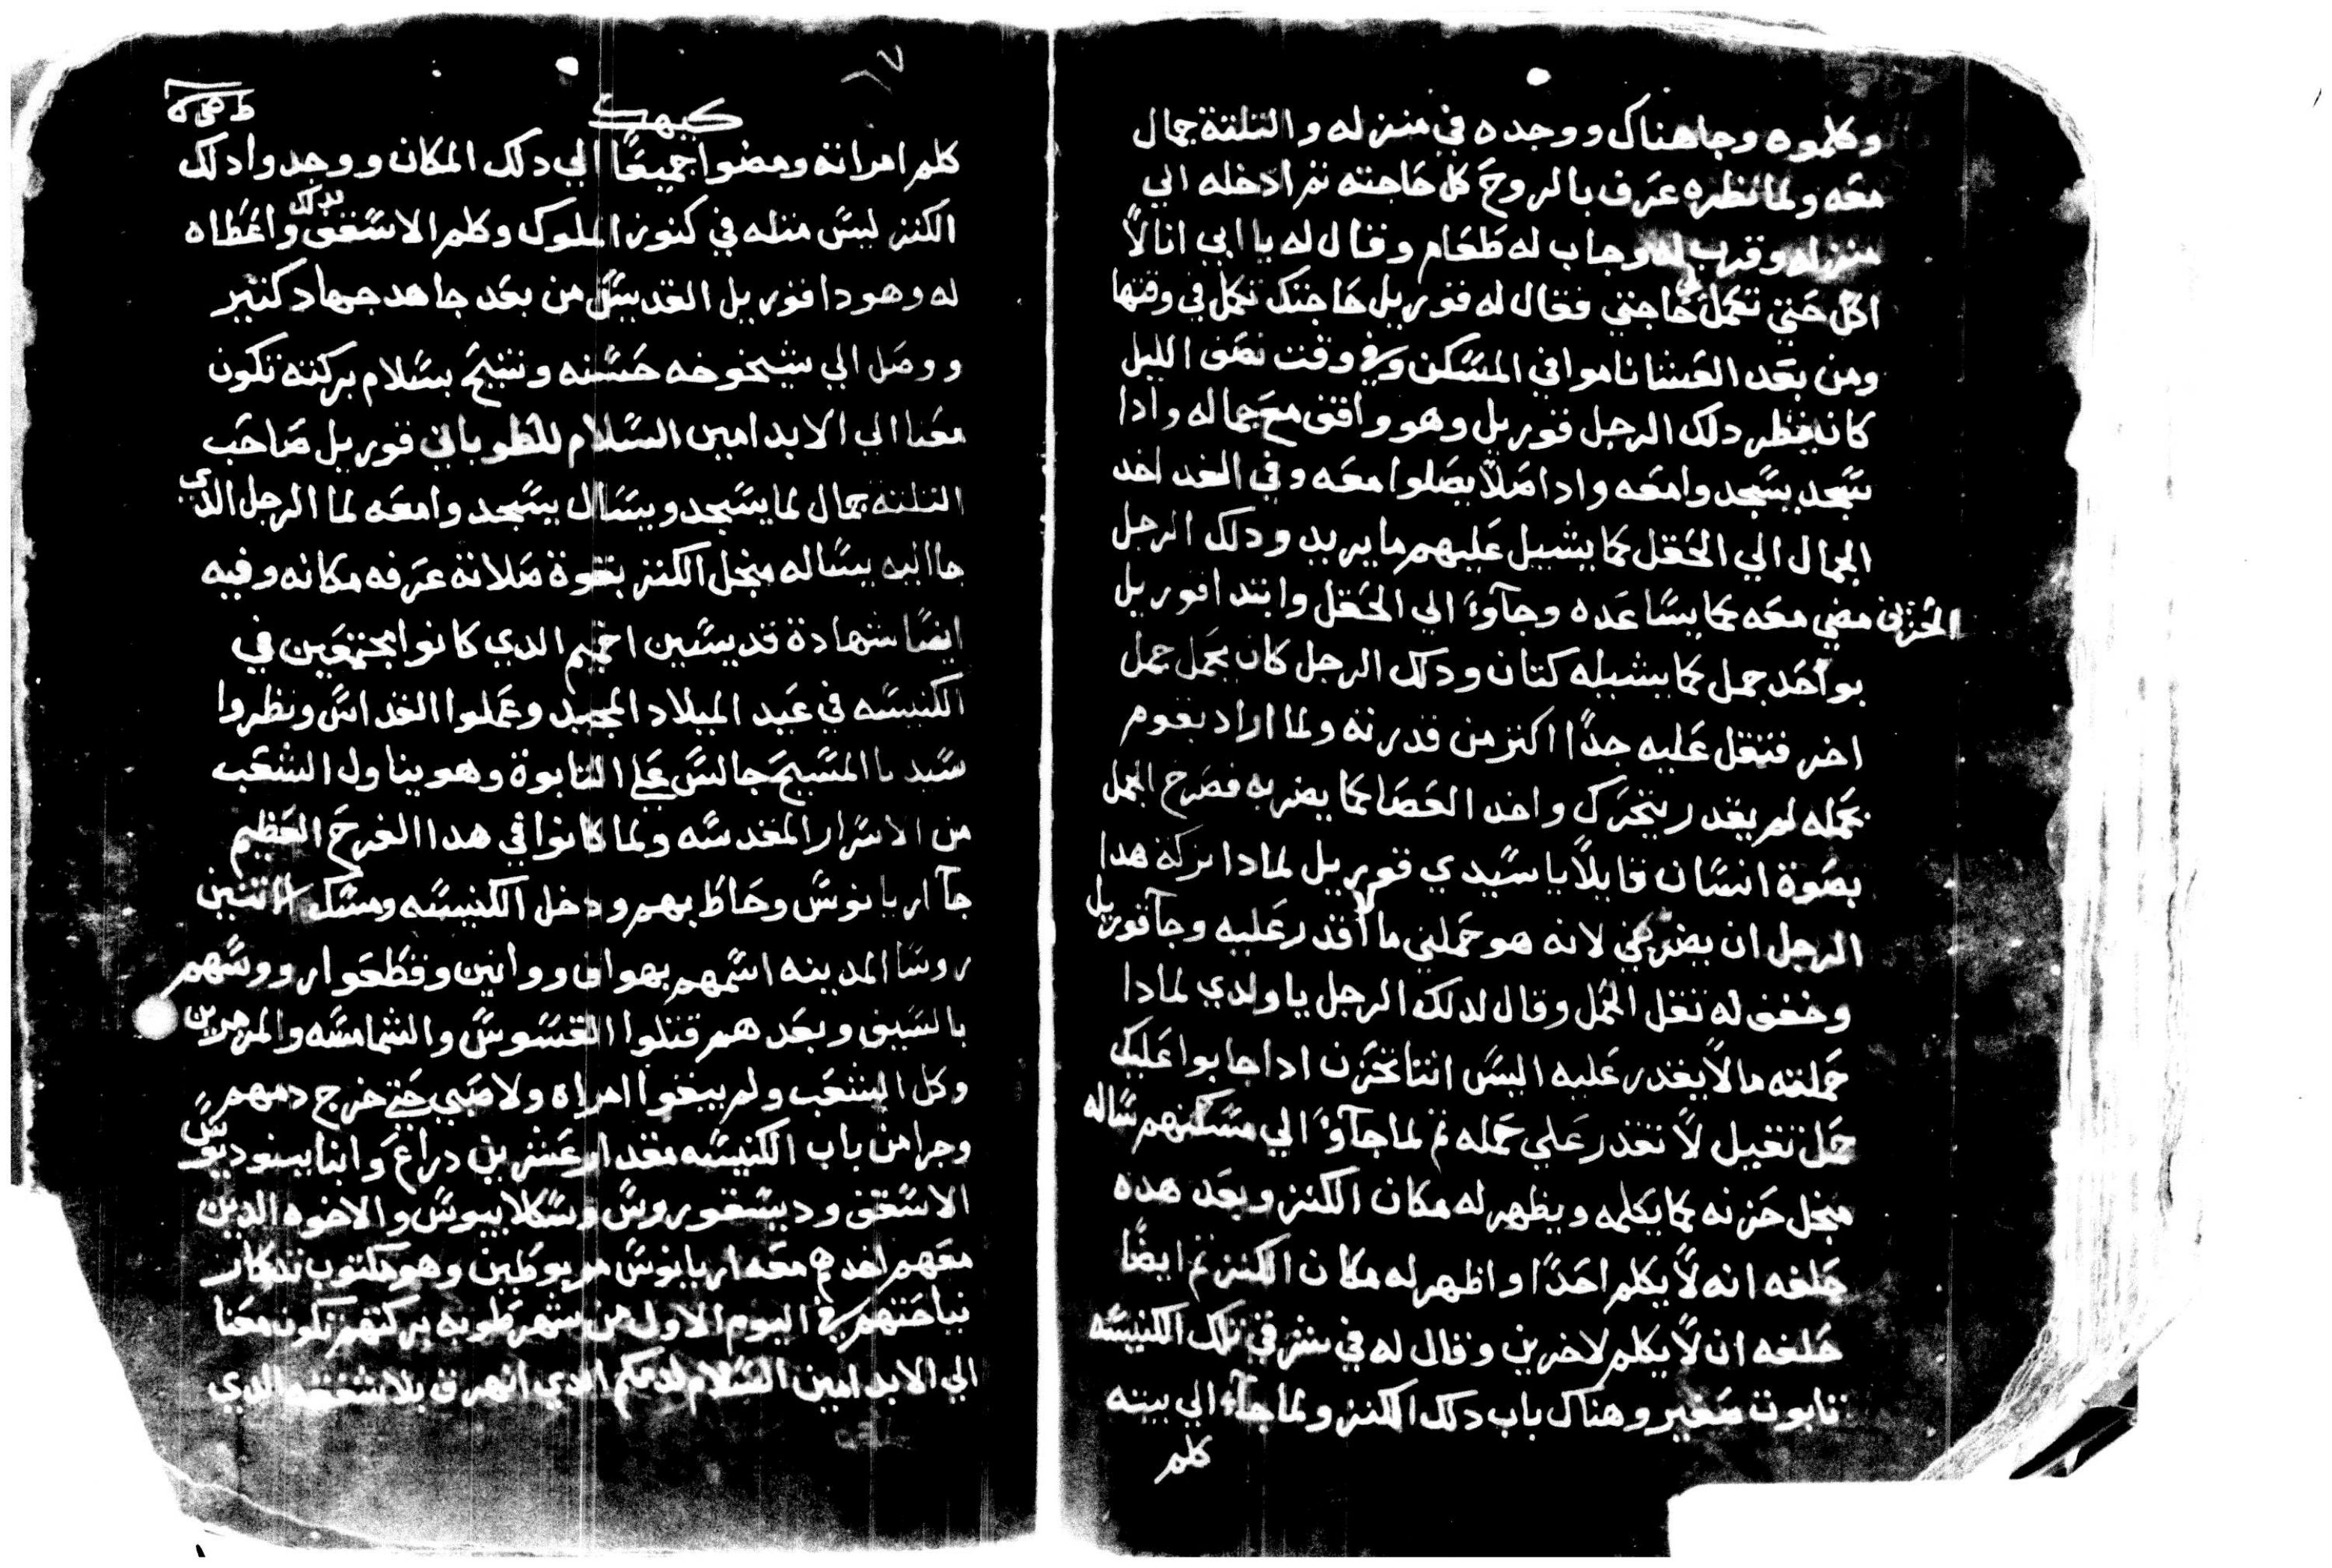 وكلموه وجا هناك ووجده في منزله والتلتة جمال
معه ولما نظره عرف بالروح كل حاجته تم ادخله الي
منزله وقرب له وجاب له طعام وقال له يا ابي انا لا
اكل حتي تكمل لي حاجتي فقال له قوريل حاجتك تكمل في وقتها
ومن بعد العشا ناموا في المسكن وفي وقت نصف الليل
كان ينظر دلك الرجل قوريل وهو واقف مع جماله وادا
سجد يسجدوا معه وادا صلا يصلوا معه وفي الغد اخد
الجمال الي الحقل كما يشيل عليهم ما يريد ودلك الرجل
الحزين مضي معه كما يساعده وجاوا الي الحقل وابتدا قوريل
بواحد جمل كما يشيله كتان ودلك الرجل كان يحمل جمل
اخر فتقل عليه جدا اكتر من قدرته ولما اراد يقوم
بحمله لم يقدر يتحرك واخد العصا كما يضربه فصرخ الجمل
بصوة انسان قايلا يا سيدي قوريل لمادا تركة هدا
الرجل ان يضربني لانه هو حملني ما لا اقدر عليه وجا قوريل
وخفف له تقل الحمل وقال لدلك الرجل يا ولدي لمادا
حملته ما لا يقدر عليه اليس انتا تحزن ادا جابوا عليك
حمل تقيل لا تقدر علي حمله تم لما جاوا الي مسكنهم ساله
منجل حزنه كما يكلمه ويظهر له مكان الكنز وبعد هده
حلفه انه لا يكلم احدا واظهر له مكان الكنز تم ايضا
حلفه ان لا يكلم لاخرين وقال له في شرقي تلك الكنيسه
تابوت صغير وهناك باب دلك الكنز ولما جاء الي بيته
كلم
كيهك
كلم امراته ومضوا جميعا الي دلك المكان ووجدوا دلك
الكنز ليس متله في كنوز الملوك وكلم الاسقف بدلك واعطاه
له وهودا قوريل القديس من بعد جاهد جهاد كتير
ووصل الي شيخوخه حسنه وتنيح بسلام بركته تكون
معنا الي الابد امين السلام للطوباني قوريل صاحب
التلتة جمال لما يسجد ويسال يسجدوا معه لما الرجل الدي
جا اليه يساله منجل الكنز بقوة صلاته عرفه مكانه وفيه
ايضا شهادة قديسين اخميم الدي كانوا مجتمعين في
الكنيسه في عيد الميلاد المجيد وعملوا القداس ونظروا
سيدنا المسيح جالس علي التابوة وهو يناول الشعب
من الاسرار المقدسه ولما كانوا في هدا الفرح العظيم
جا اريانوس وحاط بهم ودخل الكنيسه ومسك الاتنين
روسا المدينه اسمهم بهواف ووانين وقطعوا رووسهم
بالسيف وبعدهم قتلوا القسوس والشمامسه والمزمرين
وكل الشعب ولم يبقوا امراه ولا صبي حتي خرج دمهم
وجرا من باب الكنيسه مقدار عشرين دراع وانبا بينوديوس
الاسقف وديسقوروس وسكلابيوس والاخوه الدين
معهم اخدهم معه اريانوس مربوطين وهو مكتوب تدكار
نياحتهم في اليوم الاول من شهر طوبه بركتهم تكون معنا
الي الابد امين السلام لدمكم الدي انهرق بلا شفقه الدي